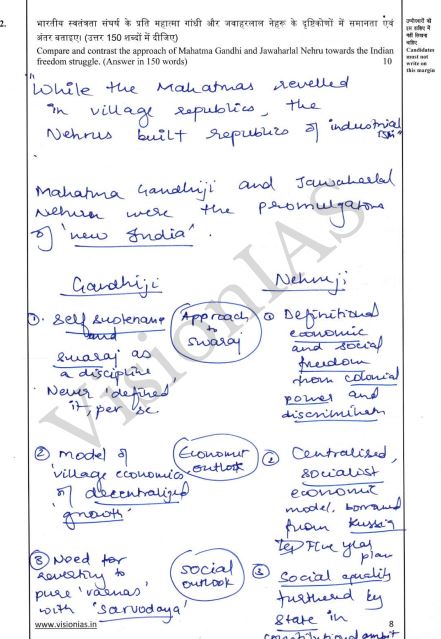 2.
भारतीय स्वतंत्रता संघर्ष के प्रति महात्मा गांधी और जवाहरलाल नेहरू के दृष्टिकोणों में समानता एवं
अंतर बताइए। (उत्तर 150 शब्दों में दीजिए)
Compare and contrast the approach of Mahatma Gandhi and Jawaharlal Nehru towards the Indian
freedom struggle. (Answer in 150 words)
10
उम्मीदवारों को
इस हाशिए में
नहीं लिखना
चाहिए
Candidates
must not
write on
this margin
"While the Mahatmas revelled
in village republics, the
Nehrus built republics of industrial
Mahatma Gandhiji and Jawaharlal
Nehru were the promulgators
of 'new India'.
Gandhiji
Nehruji
Approach
to
swaraj
① Self sustenance
and
swaraj as
a discipline
Never 'defined'
it, per se
① Definitional
economic
and social
freedom
from colonial
power and
discrimination
Economic
outlook
② Model of
'village economics'
of decentralized
'growth'
② Centralised,
socialist
economic
model, borrowed
from Russia
Five year
plan
social
outlook
③ Need for
reverting to
pure 'varnas'
with 'sarvodaya'
③ Social equality
furthered by
State in
constitutional ambit
VisionIAS
www.visionias.in
8